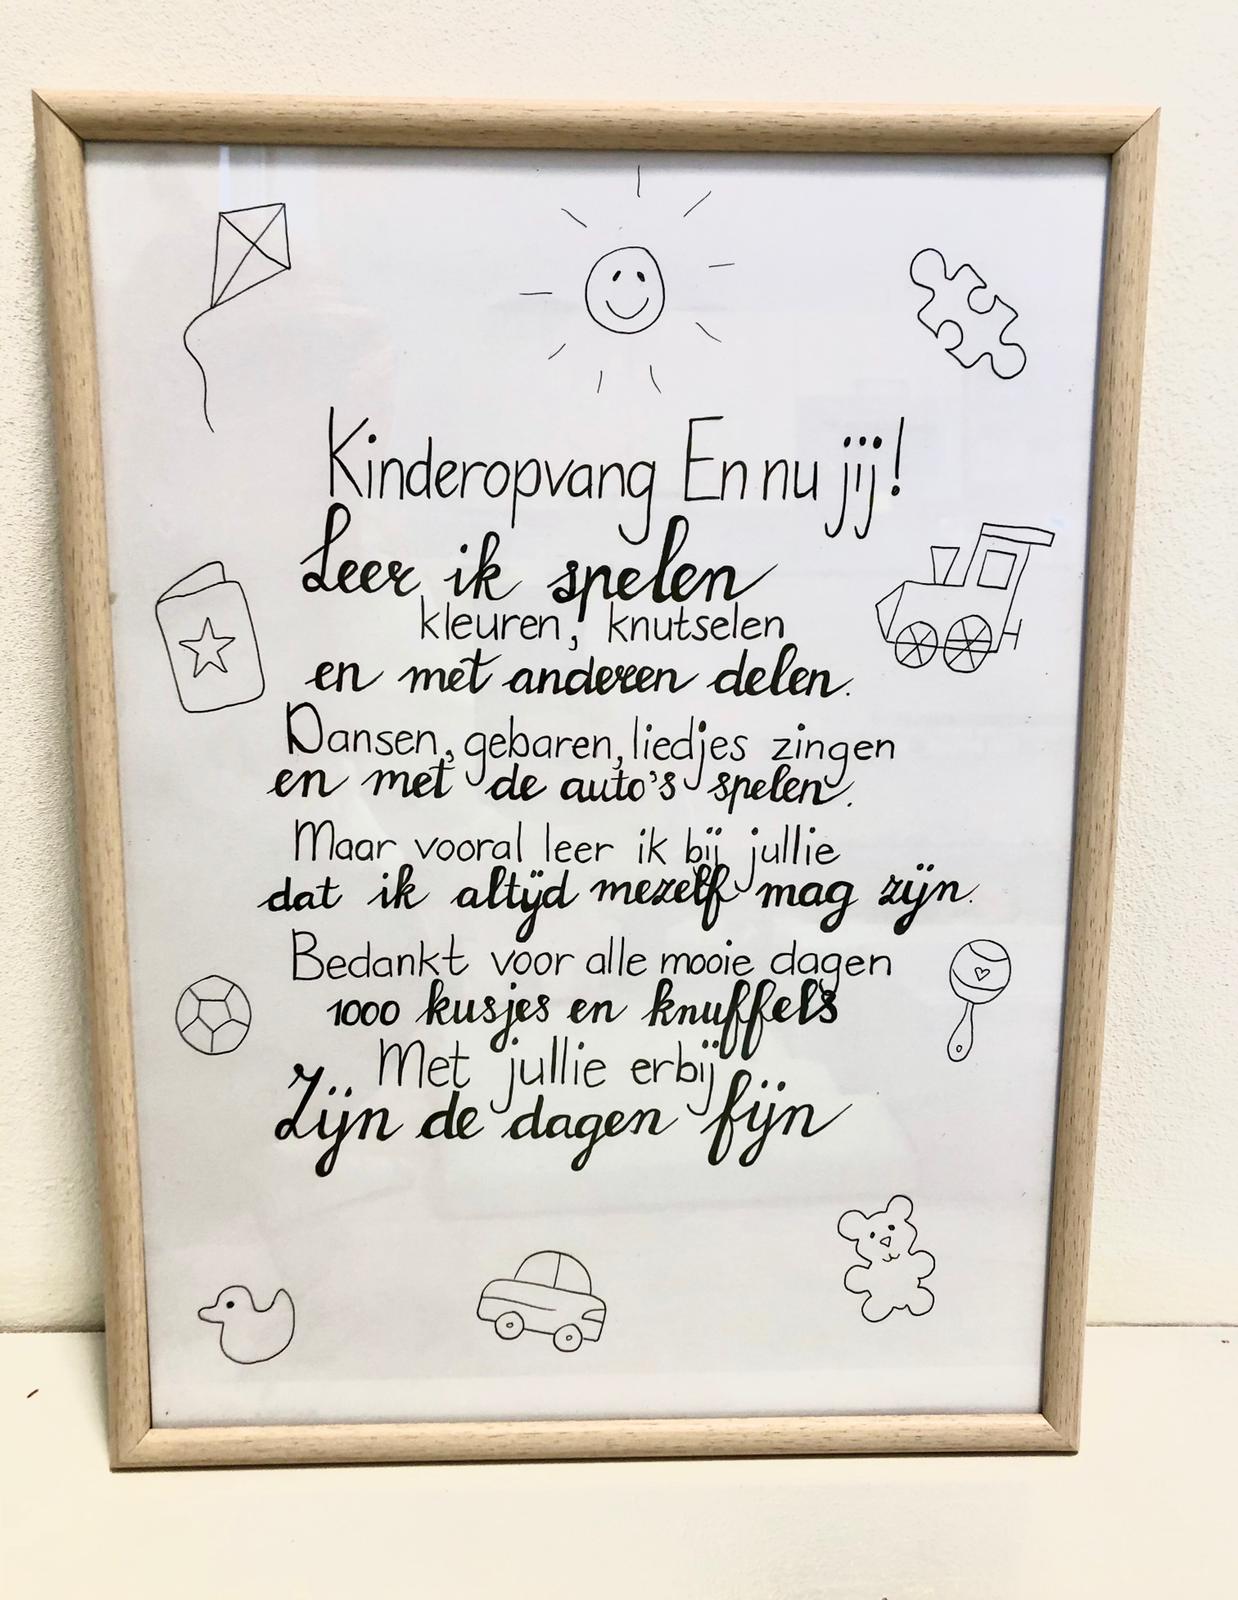 Kinderopvang En nu jij!
Leer ik spelen
kleuren, knutselen
en met anderen delen.
Dansen, gebaren, liedjes zingen
en met de auto's spelen.
Maar vooral leer ik bij jullie
dat ik altijd mezelf mag zijn.
Bedankt voor alle mooie dagen
1000 kusjes en knuffels
Met jullie erbij
Zijn de dagen fijn